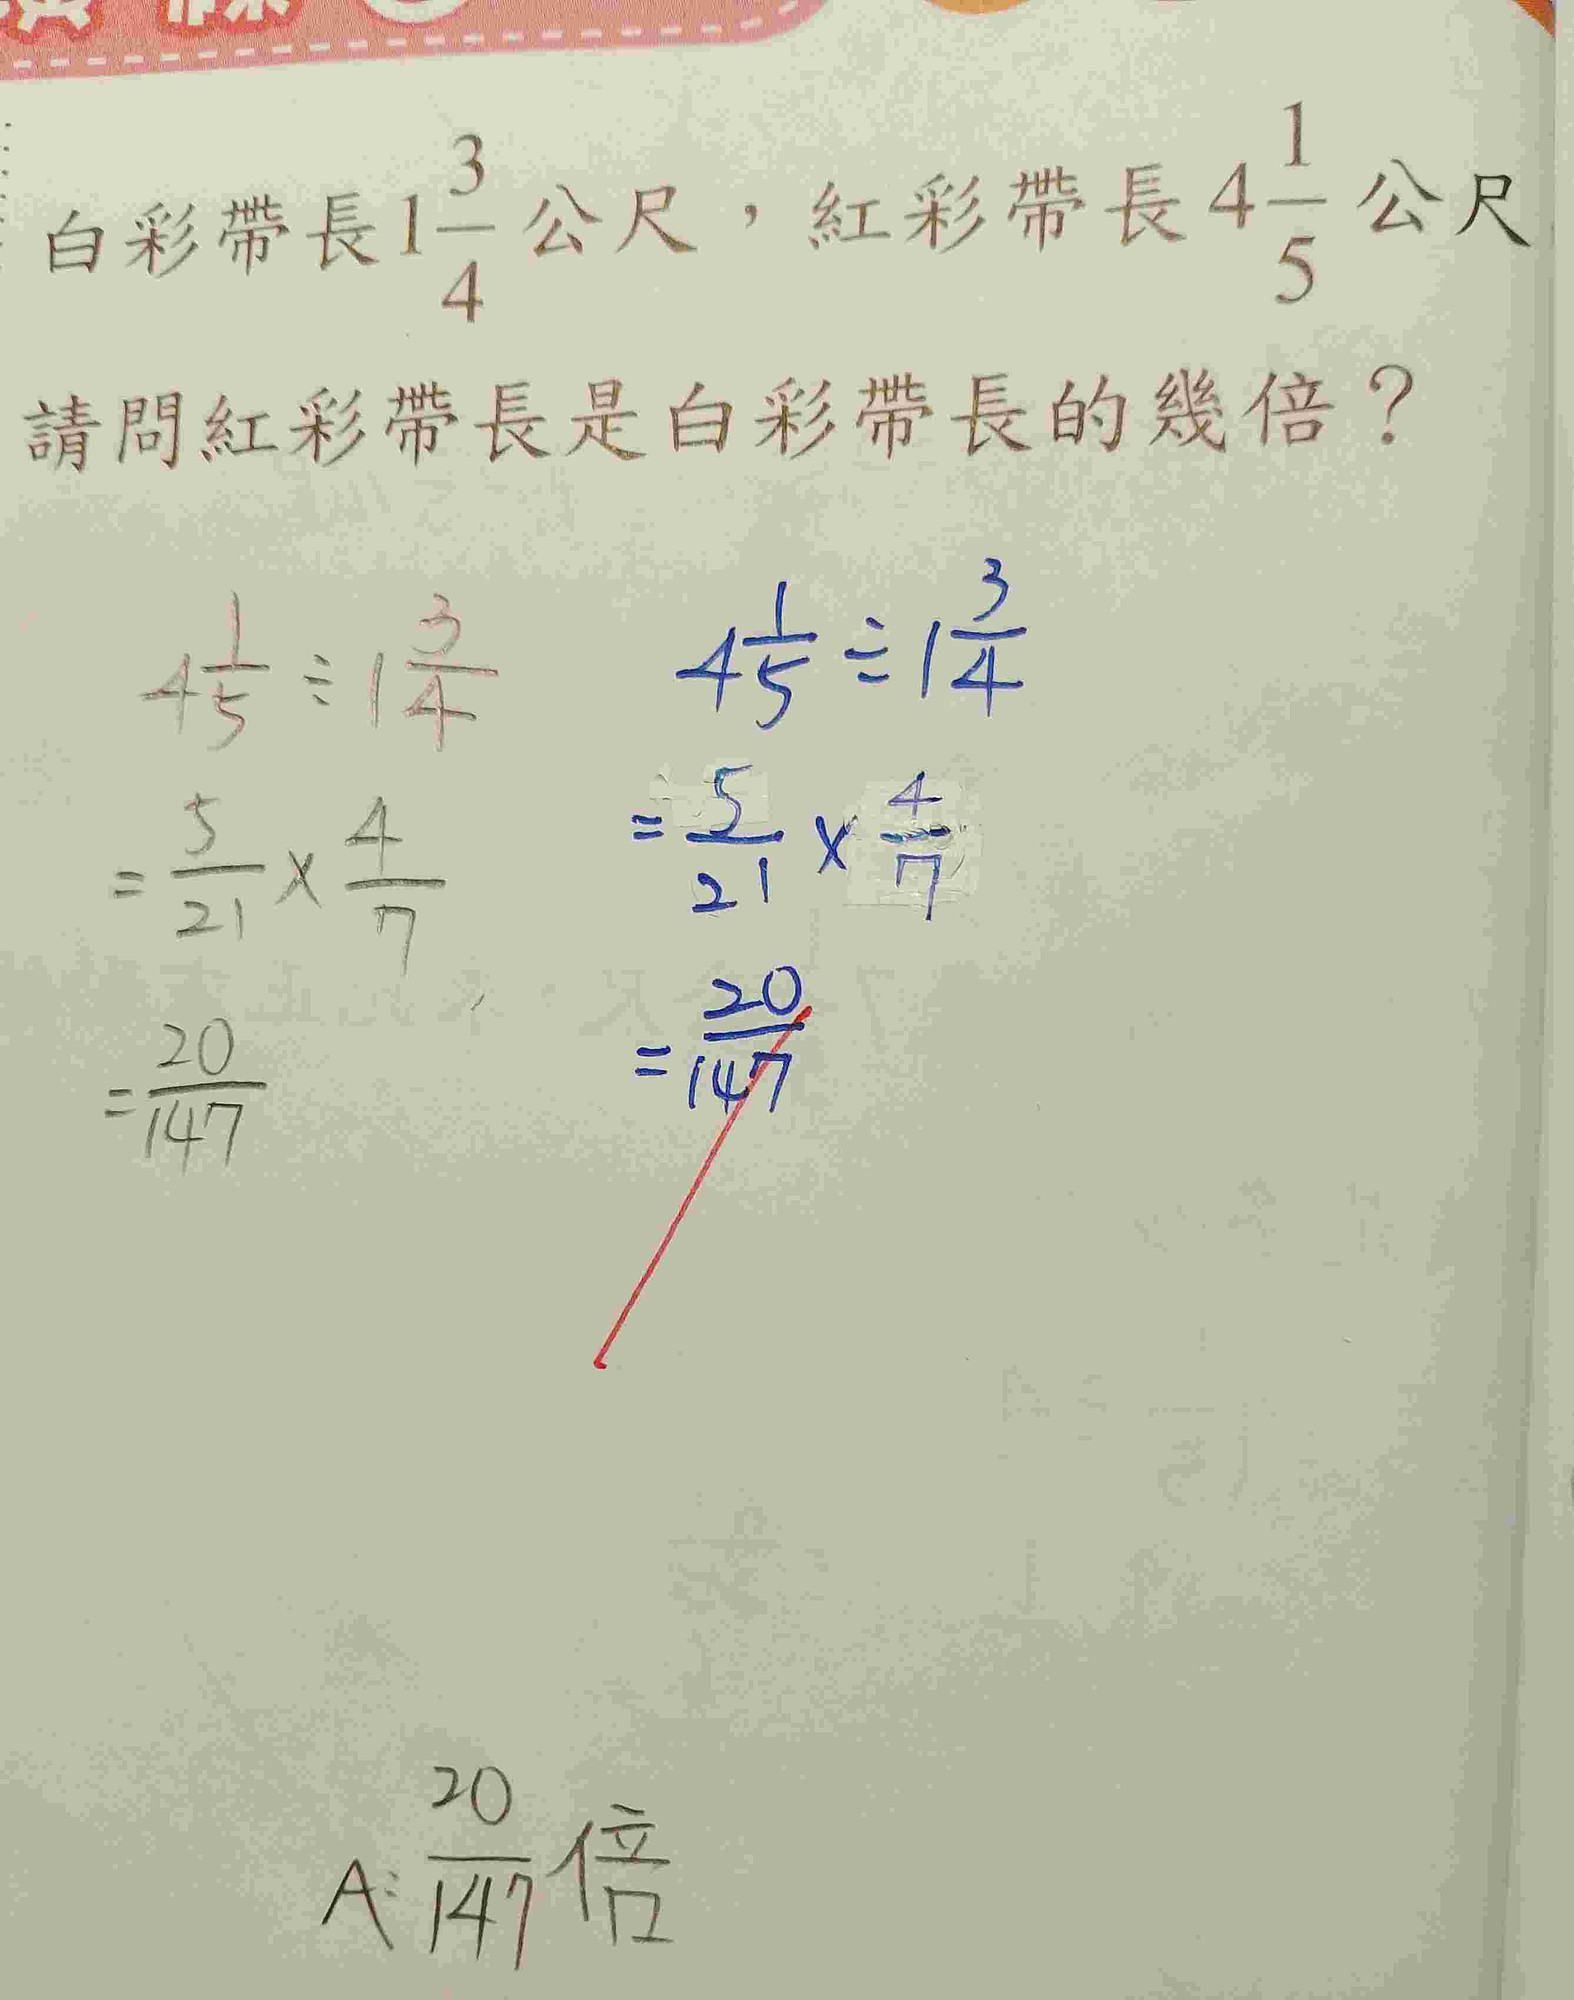 白彩帶長1 3/4 公尺，紅彩帶長4 1/5 公尺
請問紅彩帶長是白彩帶長的幾倍？
4 1/5 ÷ 1 3/4
= 5/21 × 4/7
= 20/147
4 1/5 ÷ 1 3/4
= 5/21 × 4/7
= 20/147
A: 20/147 倍